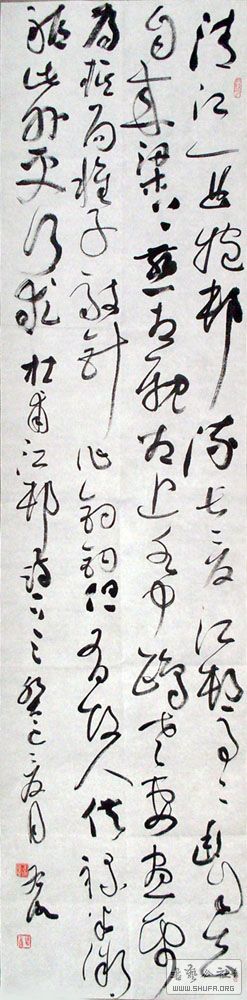 清江一曲抱邨流長夏江村事〻幽自去
自來梁上燕相親相近水中鷗老妻畫紙
為棋局稚子敲針作釣鉤但有故人供祿米微
軀此外更何求 杜甫江邨詩一首癸巳夏月
書藝公社
WWW.SHUFA.ORG